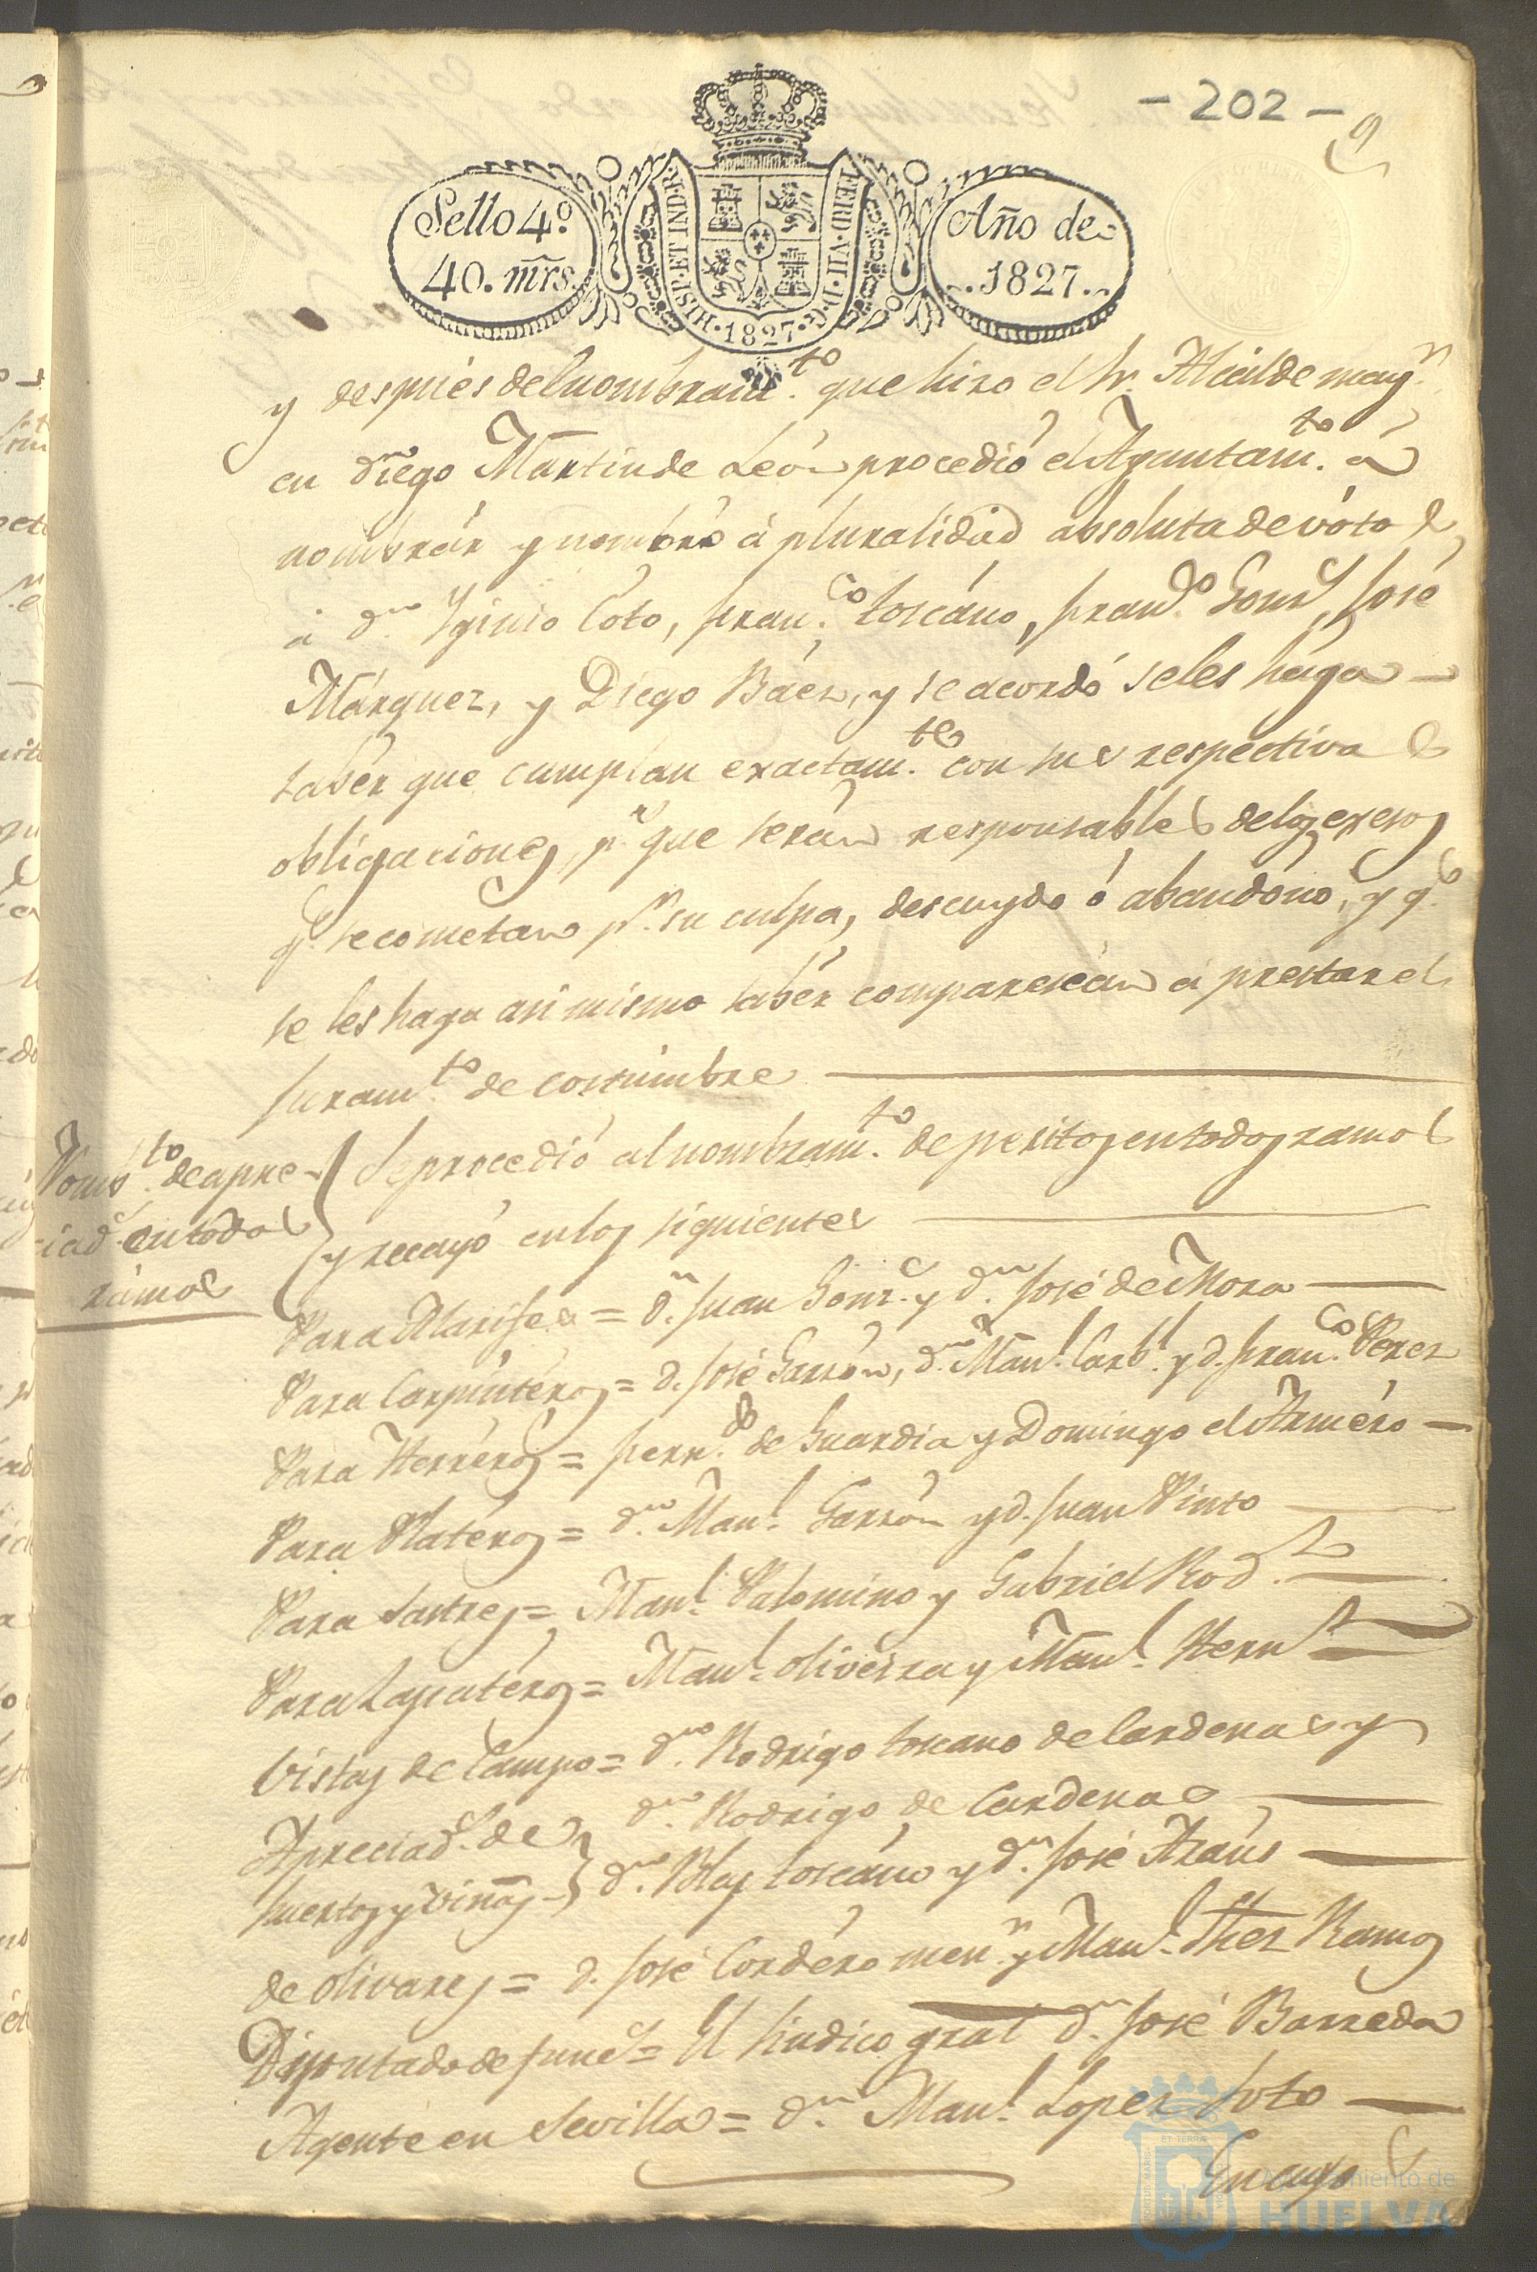 - 202 -
9
Sello 4º
40. mrs.
HISP. ET IND. R.
FERD. VII. D. G.
1827
Año de
1827.
y despues del nombram.to que hizo el Sr. Alcalde may.r
en Diego Martin de León procedió el Ayuntam.to a
nombrár y nombró á pluralidad absoluta de vótos
á dn. Yginio Cóto, Fran.co Toscáno, Fran.co Gonz, José
Márquez, y Diego Báez, y se acordó seles hága
sabér que cumplan exactam.te con sus respectivas
obligaciones, p.r que serán responsables de los excesos
q.e se cometan p.r su culpa, descuydo ó abandóno, y q.e
se les haga asi mismo sabér comparescan á prestar el
juram.to de costúmbre
Nomb.to de apre-
ciad.s en tódos
rámos
Se procedió al nombram.to de peritos en todos ramos
y recayó en los siguientes
Para Alarifes = d.n Juan Gonz. y d.n José de Mora
Para Carpintéros = d. José Garzón, d.n Man.l Carb.l y d. Fran.co Perez
Para Herréros = Fern.do de Guardia y Domingo el Arméro
Para Platéros = d.n Man.l Garzón y d. Juan Pinto
Para Sastres = Man.l Palomino y Gabriel Rod.z
Para Zapatéros = Man.l Oliveira y Man.l Hern.z
Vistas de Campo = d.n Rodrigo Toscano de Cardenas y
d.n Rodrigo de Cardenas
Apreciad.s de
huertos y viñas } d.n Blas Toscáno y d.n José Araús
de olivares = d. José Cordéro men.r y Man.l Shez Ramos
Diputado de = El Sindico gral d.n José Barreda
Agente en Sevilla = d.n Man.l Lopez Soto
En cuyo
Ayuntamiento de
HUELVA